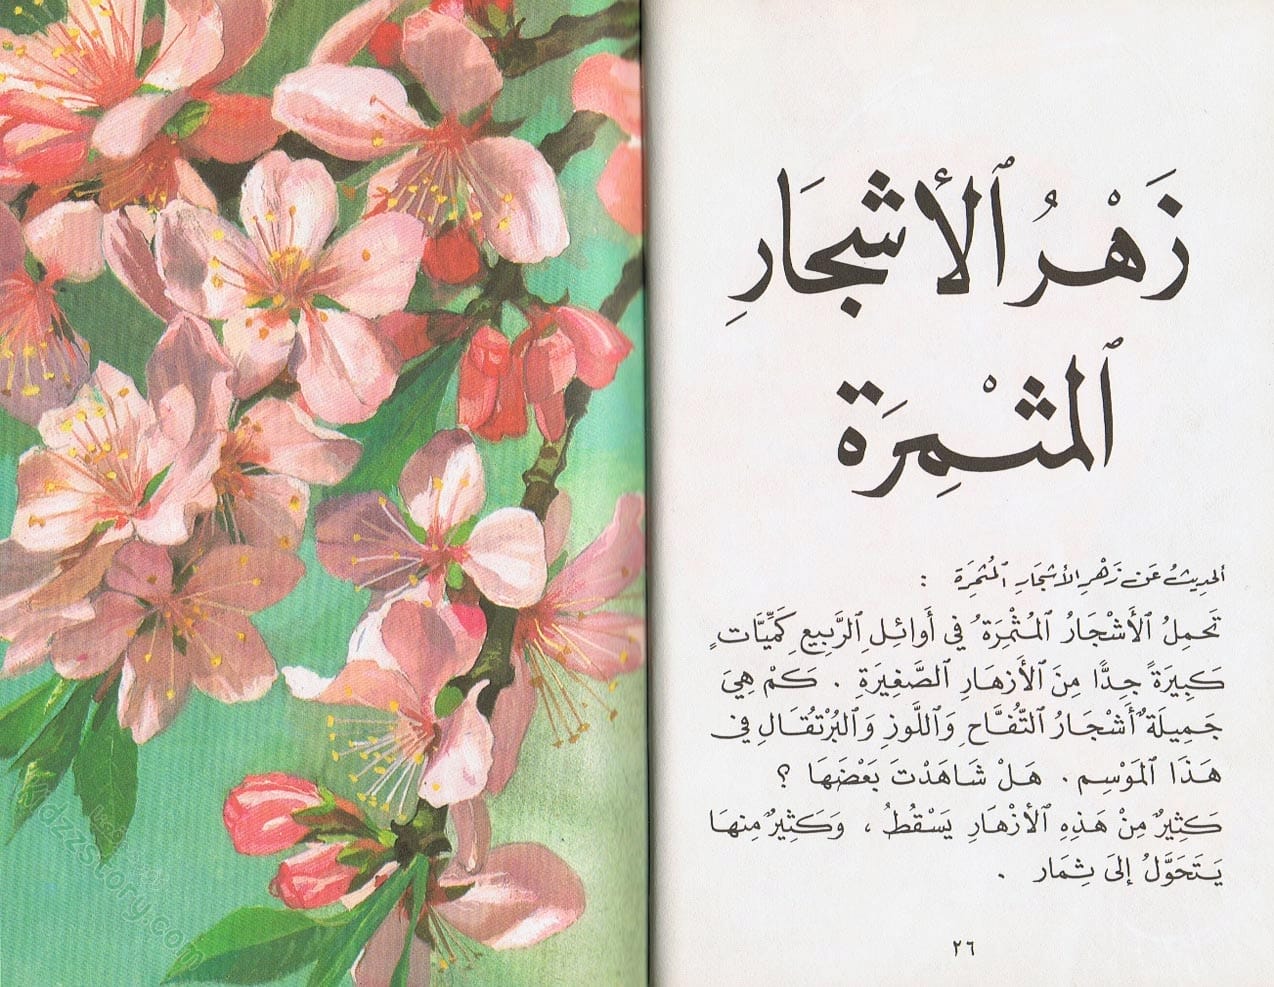 زَهْرُ ٱلأشجَارِ
ٱلمثْمِرَة
الحديثُ عَن زَهْرِ الأشجَارِ المُثمِرَة :
تَحمِلُ ٱلأَشْجَارُ ٱلمُثْمِرَةُ في أَوائِلِ ٱلرَّبيعِ كَمِّيَّاتٍ
كَبِيرَةً جِدًّا مِنَ ٱلأَزهَارِ ٱلصَّغِيرَةِ . كَمْ هِيَ
جَمِيلَةٌ أَشْجَارُ التُّفَّاحِ وَٱللَّوزِ وَٱلبُرْتُقَالِ في
هَذَا ٱلمَوْسِمِ . هَلْ شَاهَدْتَ بَعْضَهَا ؟
كَثِيرٌ مِنْ هَذِهِ ٱلأَزْهَارِ يَسْقُطُ ، وَكَثِيرٌ مِنهَا
يَتَحَوَّلُ إلىَ ثِمَار .
٢٦
kidzzstory.com